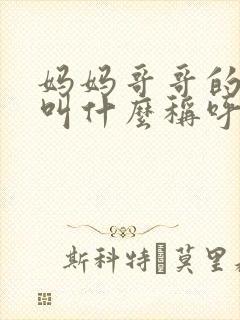 妈妈哥哥的
叫什麼稱呼
斯科特�莫里